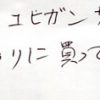 ユビガン
りに買って